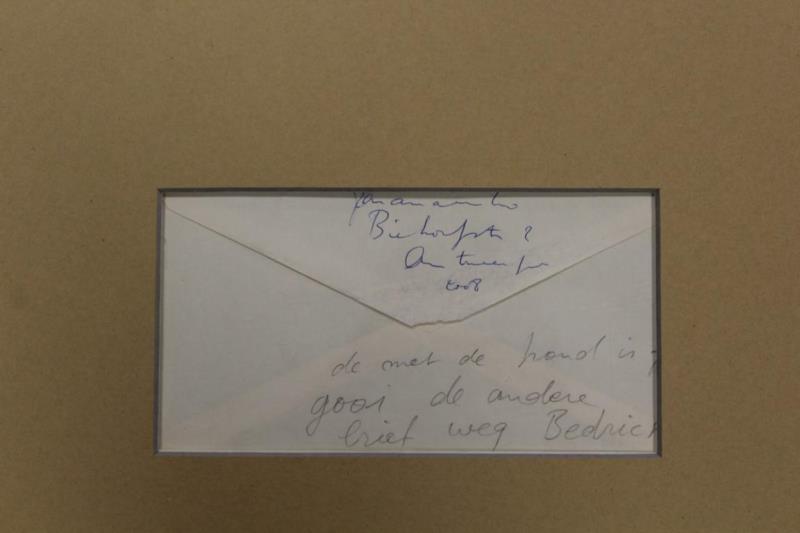 Panamarenko
Biekorfstr 2
Antwerpen
2008
de met de hand is
gooi de andere
brief weg Bedrich